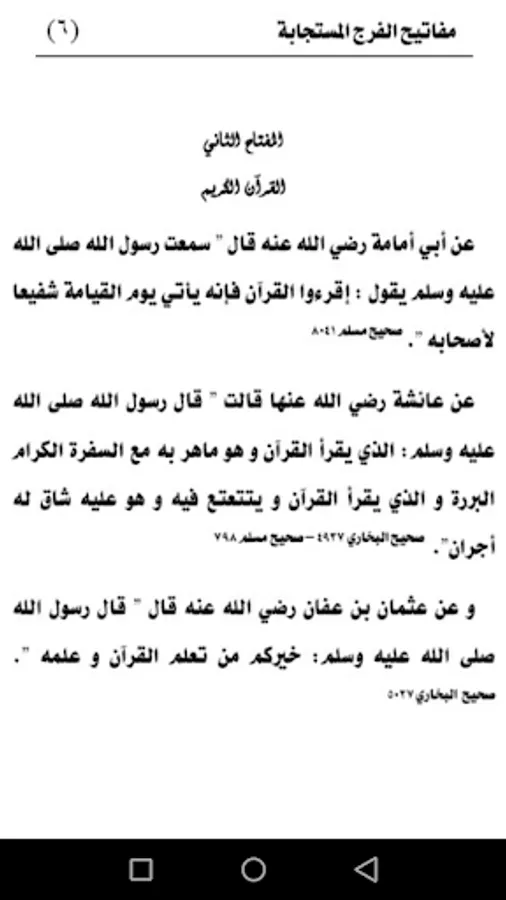 مفاتيح الفرج المستجابة (٦)
المفتاح الثاني
القرآن الكريم
عن أبي أمامة رضي الله عنه قال " سمعت رسول الله صلى الله
عليه وسلم يقول : إقرءوا القرآن فإنه يأتي يوم القيامة شفيعا
لأصحابه ". صحيح مسلم ٨٠٤١
عن عائشة رضي الله عنها قالت " قال رسول الله صلى الله
عليه وسلم: الذي يقرأ القرآن و هو ماهر به مع السفرة الكرام
البررة و الذي يقرأ القرآن و يتتعتع فيه و هو عليه شاق له
أجران". صحيح البخاري ٤٩٣٧ – صحيح مسلم ٧٩٨
و عن عثمان بن عفان رضي الله عنه قال " قال رسول الله
صلى الله عليه وسلم: خيركم من تعلم القرآن و علمه ".
صحيح البخاري ٥٠٢٧